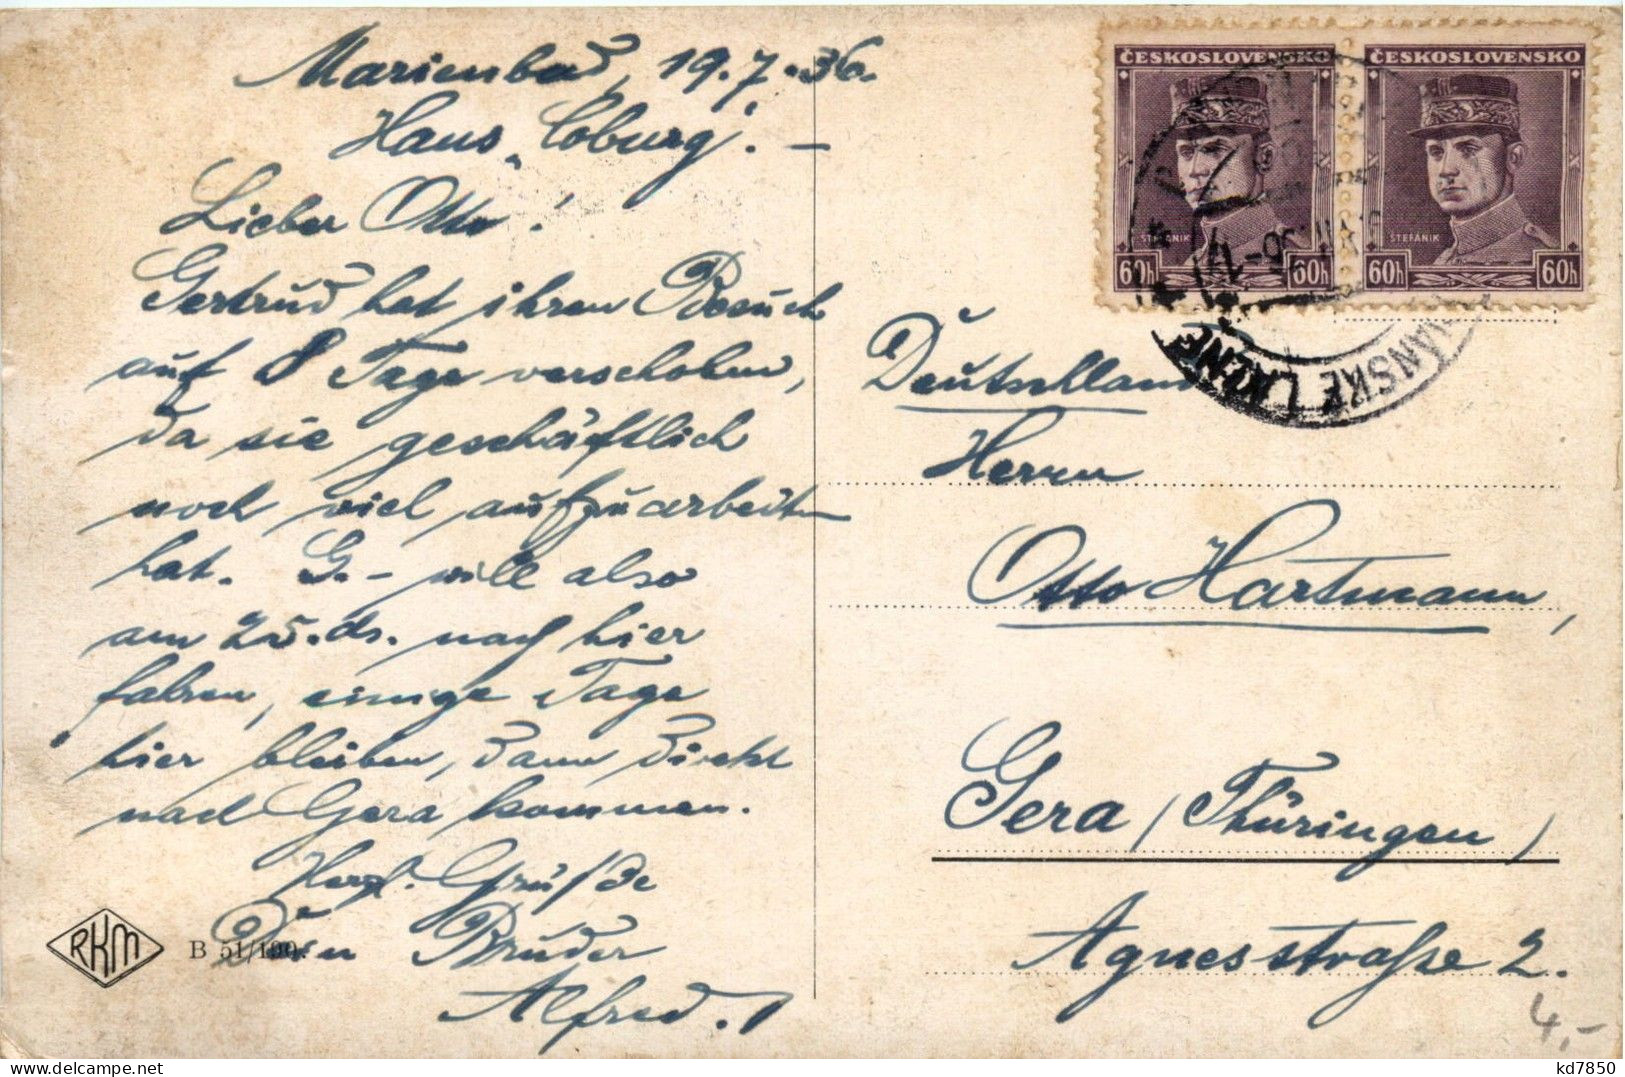 Marienbad, 19.7.36.
Haus „Coburg". –
Lieber Otto!
Gertrud hat ihren Besuch
auf 8 Tage verschoben,
da sie geschäftlich
noch viel aufzuarbeiten
hat. G. – will also
am 25. ds. nach hier
fahren, einige Tage
hier bleiben, dann direkt
nach Gera kommen.
Herzl. Grüße
Dein Bruder
Alfred.
RKM
B 51/190.
ČESKOSLOVENSKO
ŠTEFÁNIK
60h 60h
ČESKOSLOVENSKO
ŠTEFÁNIK
60h 60h
Deutschland
Herrn
Otto Hartmann,
Gera (Thüringen)
Agnesstraße 2.
4,-
kd7850